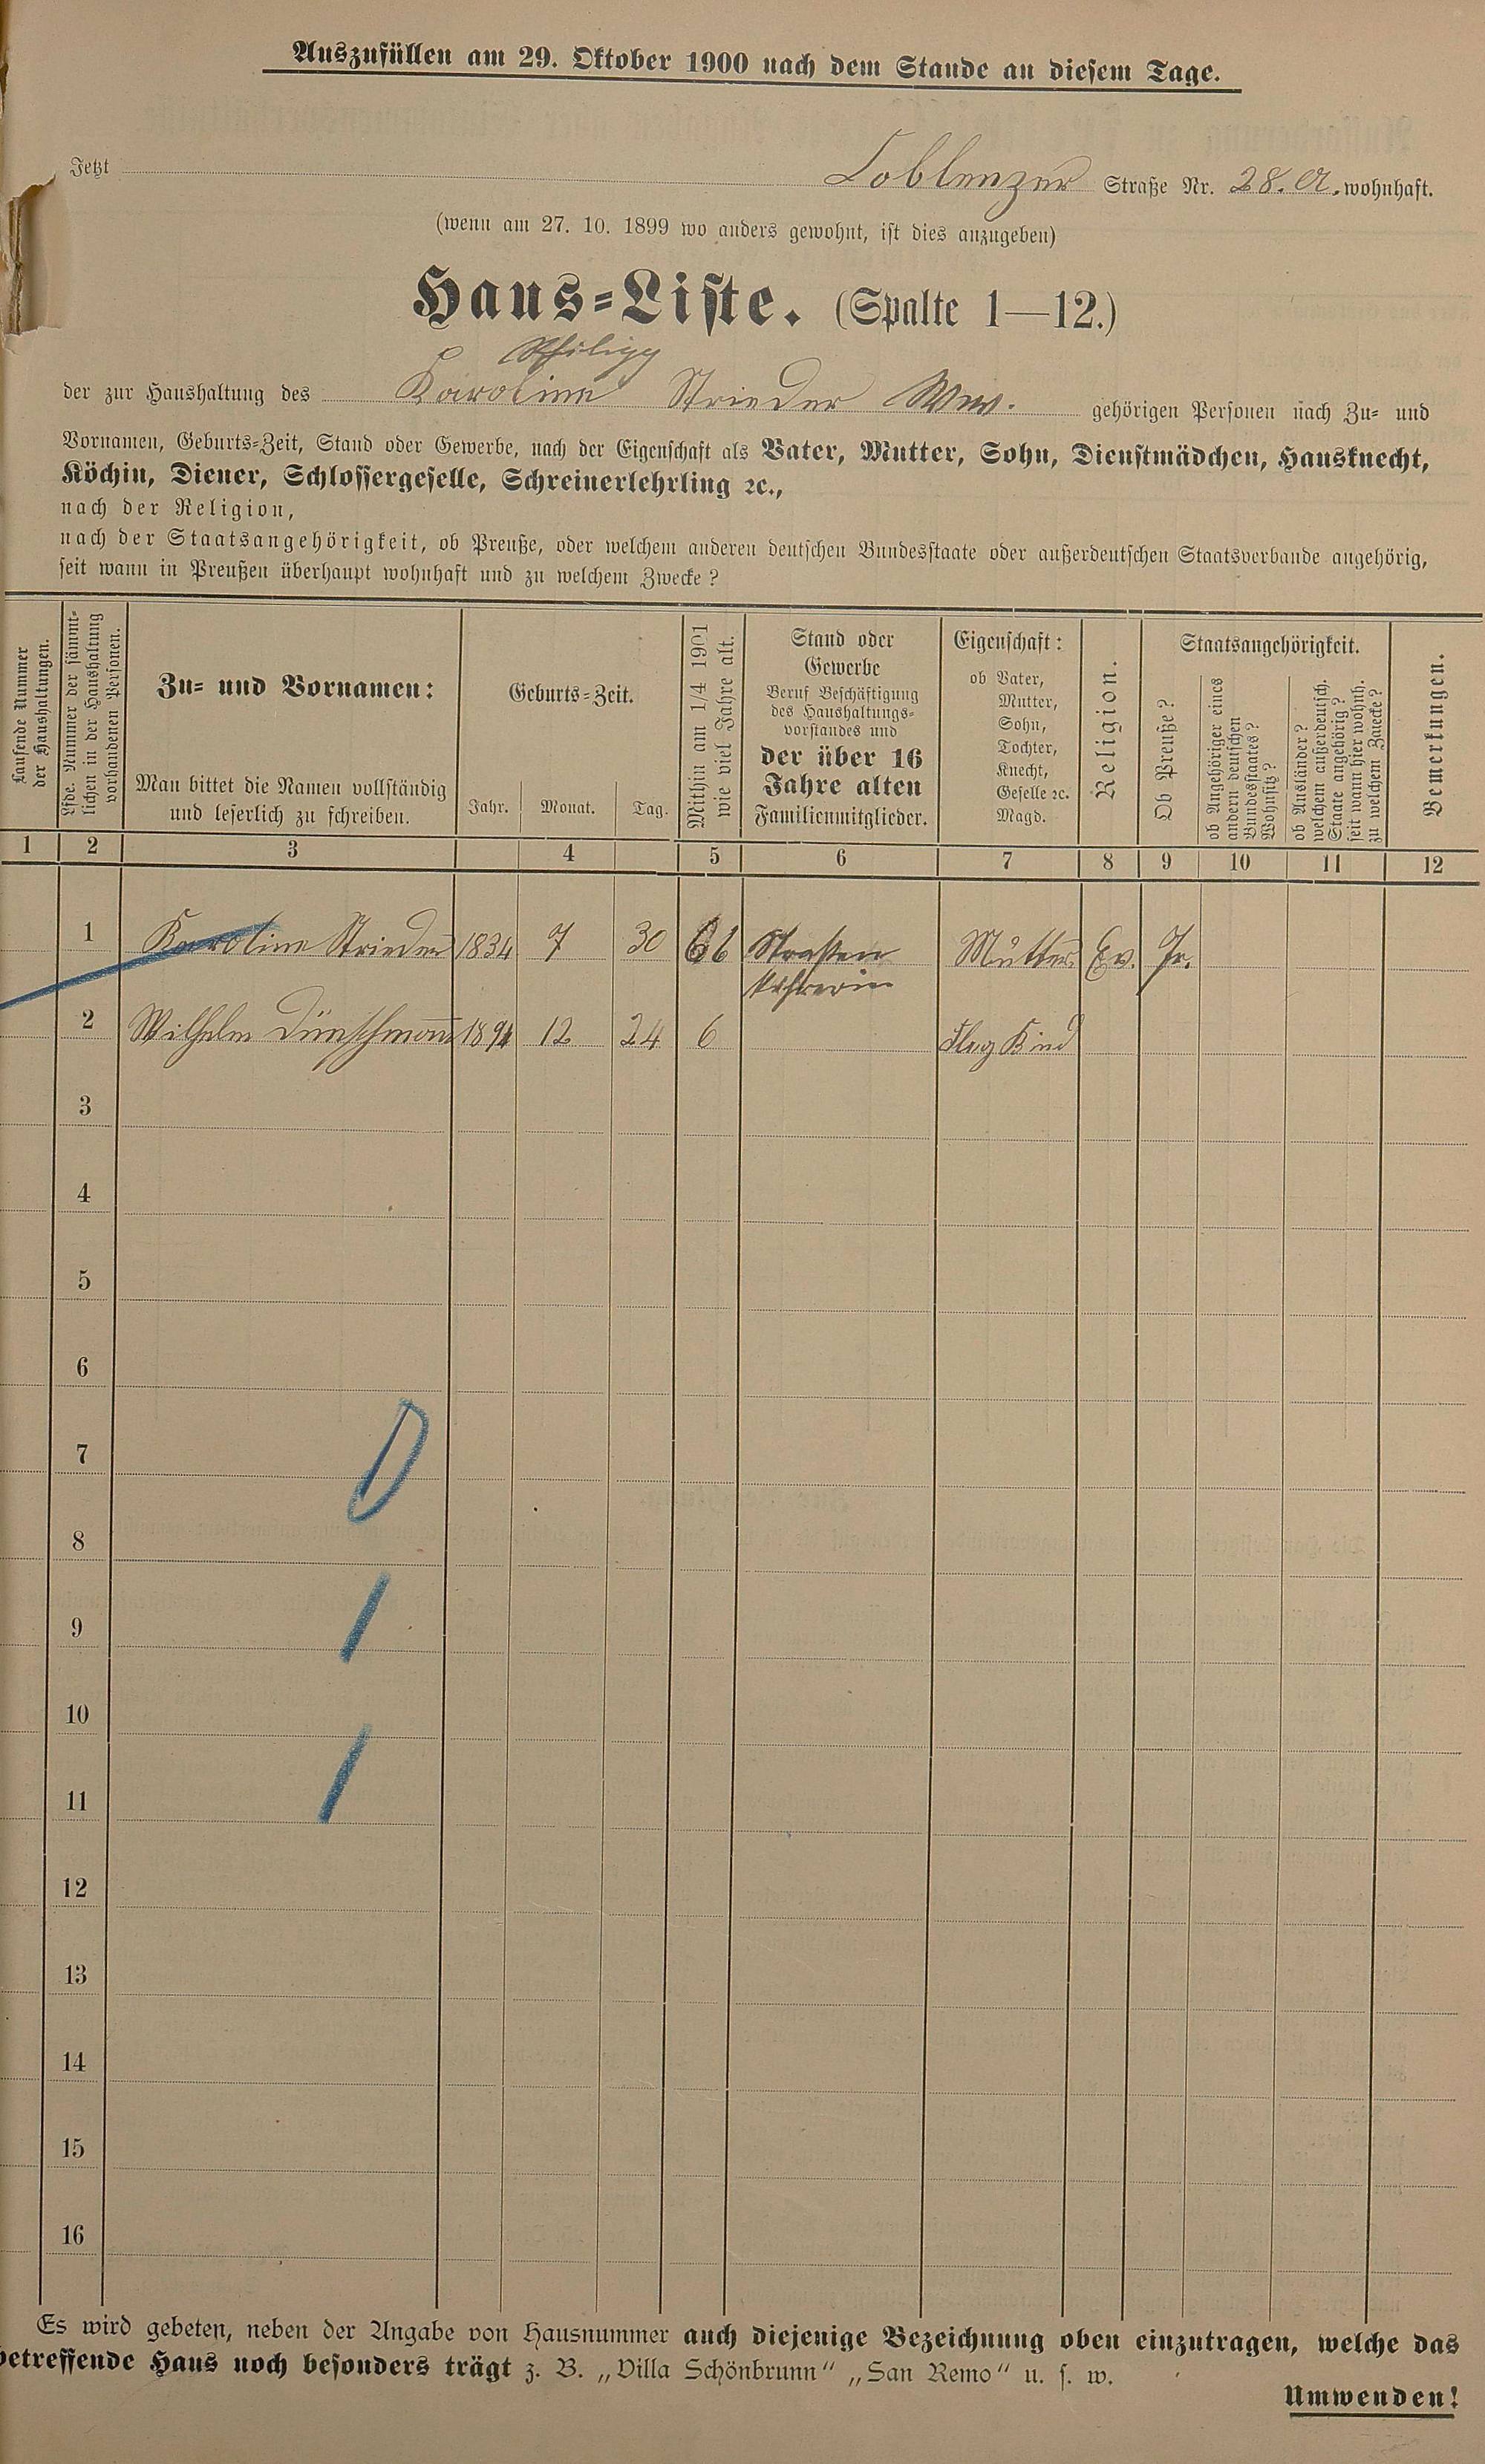 Auszufüllen am 29. Oktober 1900 nach dem Stande an diesem Tage.
Jetzt Coblenzer Straße Nr. 28. a. wohnhaft.
(wenn am 27. 10. 1899 wo anders gewohnt, ist dies anzugeben)
Haus-Liste. (Spalte 1—12.)
Philipp
der zur Haushaltung des Karoline Strieder Ww. gehörigen Personen nach Zu- und
Vornamen, Geburts-Zeit, Stand oder Gewerbe, nach der Eigenschaft als Vater, Mutter, Sohn, Dienstmädchen, Hausknecht,
Köchin, Diener, Schlossergeselle, Schreinerlehrling ꝛc.,
nach der Religion,
nach der Staatsangehörigkeit, ob Preuße, oder welchem anderen deutschen Bundesstaate oder außerdeutschen Staatsverbande angehörig,
seit wann in Preußen überhaupt wohnhaft und zu welchem Zwecke?
Laufende Nummer
der Haushaltungen.
Lfde. Nummer der sämmt-
lichen in der Haushaltung
vorhandenen Personen.
Zu- und Vornamen:
Man bittet die Namen vollständig
und leserlich zu schreiben.
Geburts-Zeit.
Jahr. Monat. Tag.
Mithin am 1/4 1901
wie viel Jahre alt.
Stand oder
Gewerbe
Beruf Beschäftigung
des Haushaltungs-
vorstandes und
der über 16
Jahre alten
Familienmitglieder.
Eigenschaft:
ob Vater,
Mutter,
Sohn,
Tochter,
Knecht,
Geselle ꝛc.
Magd.
Religion.
Staatsangehörigkeit.
Ob Preuße?
ob Angehöriger eines
andern deutschen
Bundesstaates?
Wohnsitz?
ob Ausländer?
welchem außerdeutsch.
Staate angehörig?
seit wann hier wohnh.
zu welchem Zwecke?
Bemerkungen.
1 2 3 4 5 6 7 8 9 10 11 12
1 Karoline Strieder 1834 7 30 66 Straßen Mutter Ev. Pr.
kehrerin
2 Wilhelm Dünschmann 1894 12 24 6 Kind
3
4
5
6
7
8
9
10
11
12
13
14
15
16
Es wird gebeten, neben der Angabe von Hausnummer auch diejenige Bezeichnung oben einzutragen, welche das
betreffende Haus noch besonders trägt z. B. „Villa Schönbrunn“ „San Remo“ u. s. w.
Umwenden!